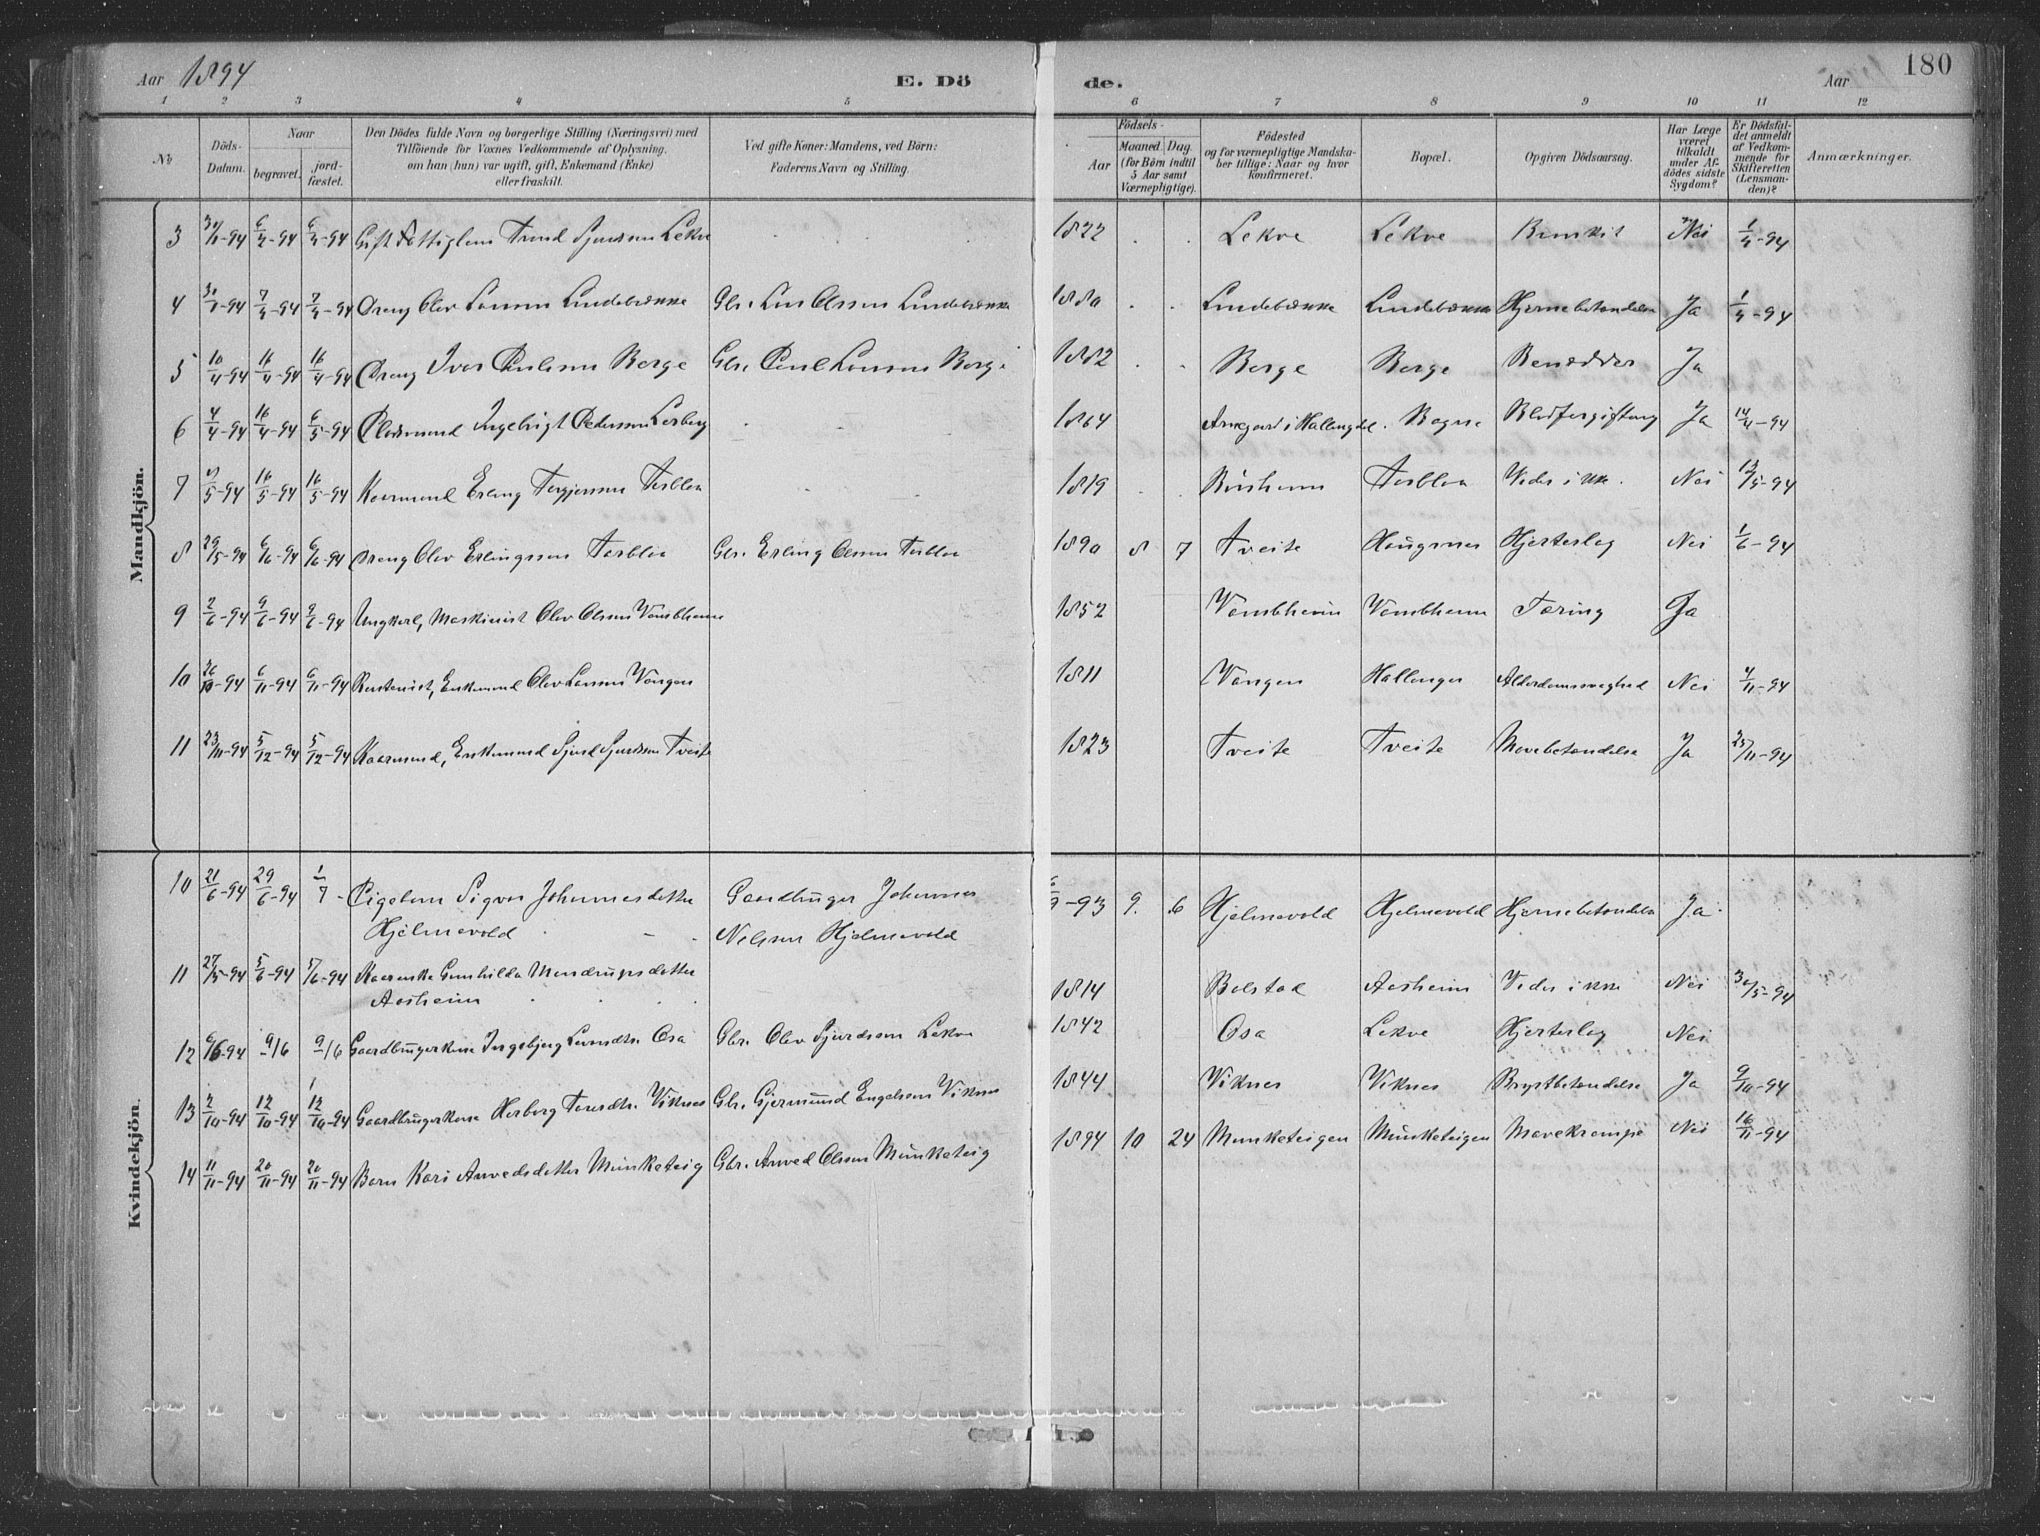 Aar 1894 E. Dö de. Aar 180
1 2 3 4 5 6 7 8 9 10 11 12
No
Döds-Datum.
Naar
begravet.
jordfæstet.
Den Dödes fulde Navn og borgerlige Stilling (Næringsvei) med
Tilföiende for Voxnes Vedkommende af Oplysning,
om han (hun) var ugift, gift, Enkemand (Enke)
eller fraskilt.
Ved gifte Koner: Mandens, ved Börn:
Faderens Navn og Stilling.
Födsels-
Aar
Maaned. Dag.
(for Börn indtil
5 Aar samt
Værnepligtige).
Födested
og for værnepligtige Mandska-
ber tillige: Naar og hvor
konfirmeret.
Bopæl.
Opgiven Dödsaarsag.
Har Læge
været
tilkaldt
under Af-
dödes sidste
Sygdom?
Er Dödsfal-
det anmeldt
af Vedkom-
mende for
Skifteretten
(Lensman-
den)?
Anmærkninger.
Mandkjön.
3 6/4-94 6/4-94 Gift Trond Sjurdsen Lekve 1822 Lekve Lekve Nei 1/4-94
4 7/4-94 7/4-94 Dreng Olav Larssen Lindebrække Gbr. Lars Olssen Lindebrække 1880 Lindebrække Lindebrække Hjernebetændelse Ja 1/4-94
5 10/4-94 16/4-94 16/4-94 Dreng Ivar Paulsen Berge Gbr. Paul Larssen Berge 1882 Berge Berge Benædder Ja
6 4/4-94 16/4-94 6/5-94 Ingebrigt Pedersen 1864 i Hallingdal Blodforgiftning Ja 14/4-94
7 16/5-94 16/5-94 Kaarmand Erling Torgjerssen Torbloa 1819 Busheim Torbloa Vides ikke Nei 13/5-94
8 29/5-94 6/6-94 6/6-94 Dreng Olav Erlingssen Torbloa Gbr. Erling Olssen Torbloa 1890 8 7 Tveite Haugsnes Hjerteslag Nei 1/6-94
9 2/6-94 9/6-94 9/6-94 Ungkarl, Maskinist Olav Olssen Vambheim 1852 Vambheim Vambheim Tæring Ja
10 26/10-94 6/11-94 6/11-94 Enkemand Olav Larssen Vangen 1811 Vangen Hallanger Alderdomssvaghed Nei 4/11-94
11 23/11-94 5/12-94 5/12-94 Kaarmand, Enkemand Sjurd Sjurdssen Tveite 1823 Tveite Tveite Mavebetændelse Ja 25/11-94
Kvindekjön.
10 21/6-94 29/6-94 1/7- Pigebarn Sigvor Johannesdatter Gaardbruger Johannes -93 9. 6 Hjelmevold Hjelmevold Hjernebetændelse Ja
Hjelmevold Nelsen Hjelmevold
11 27/5-94 5/6-94 5/6-94 Gunhilda Mondrupsdatter 1814 Bolstad Aasheim Vides ikke Nei 30/5-94
Aasheim
12 9/6 9/6 Gaardbrugerkone Ingebjørg Osa Gbr. Olav Sjurdssen Lekve 1842 Osa Lekve Hjerteslag Nei
13 2/10-94 12/10-94 12/10-94 Gaardbrugerkone Herborg Viknes Gbr. Gjermund Engelssen Viknes 1844 Viknes Viknes Brystbetændelse Ja 9/10-94
14 11/11-94 20/11-94 20/11-94 Barn Kari Arvedsdatter Munketeig Gbr. Arved Olssen Munketeig 1894 10 24 Munketeigen Munketeigen Mavekrampe Nei 16/11-94